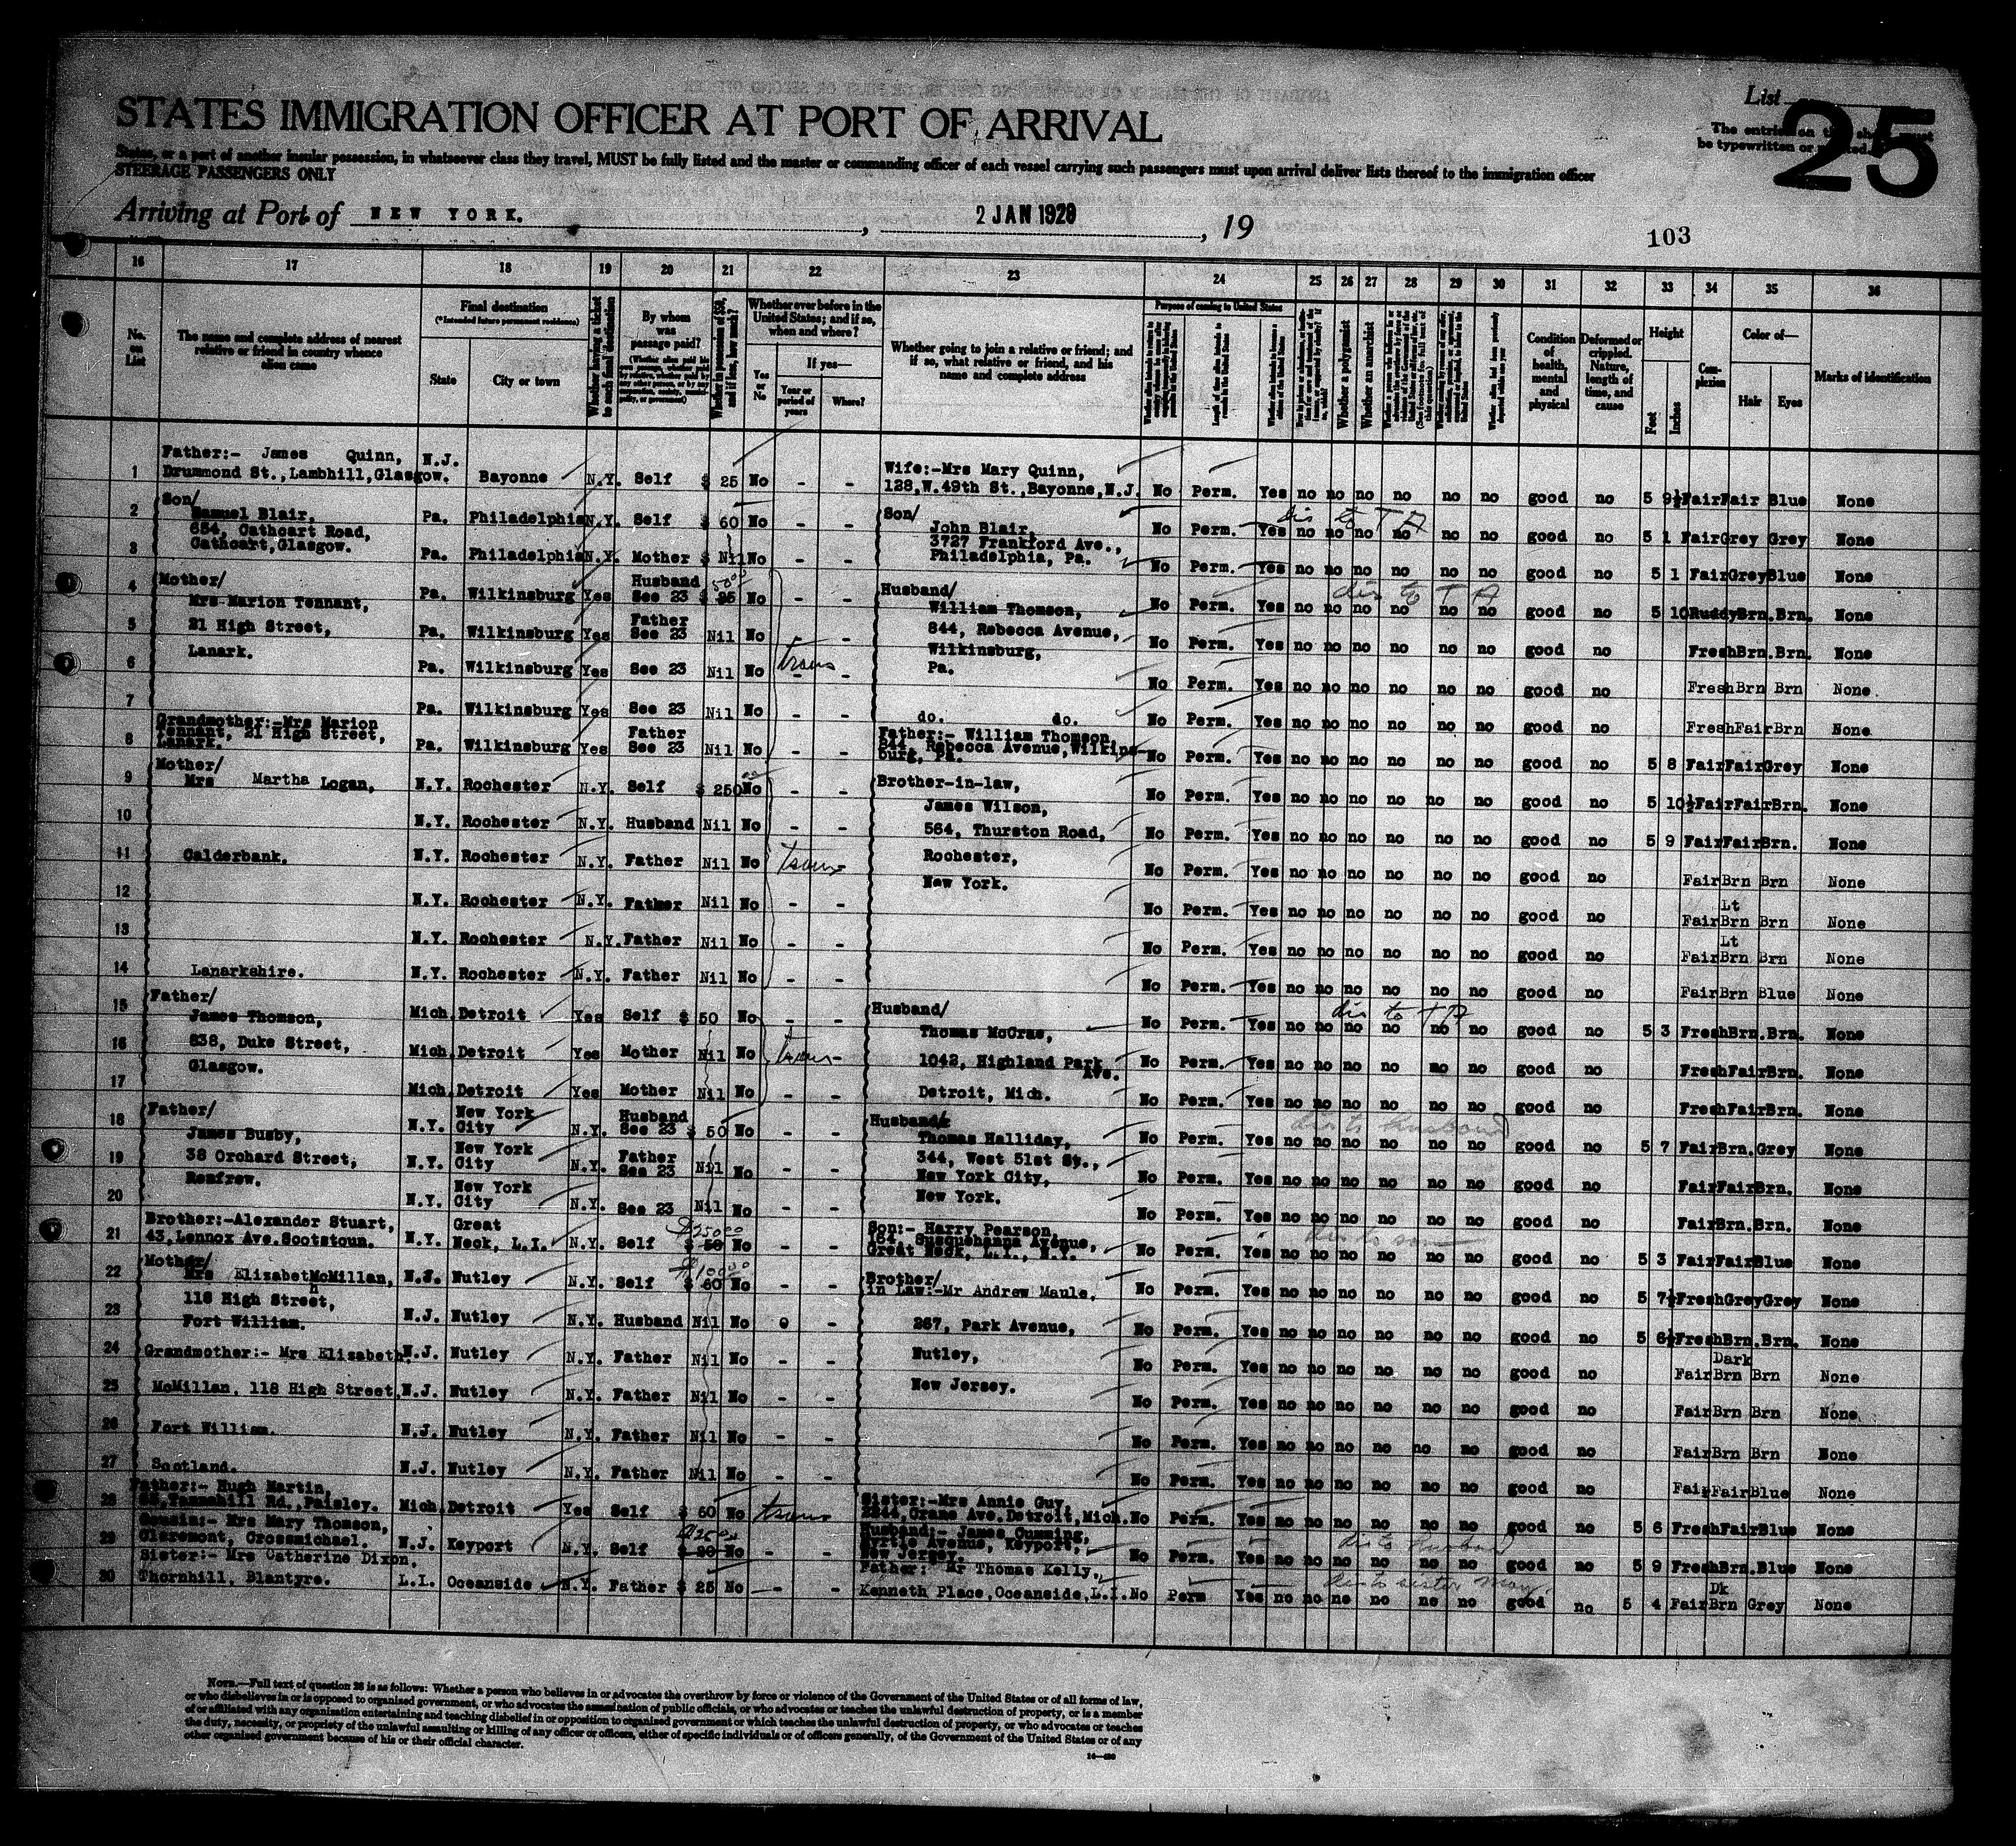 STATES IMMIGRATION OFFICER AT PORT OF ARRIVAL
List 25
The entries on this sheet must
be typewritten or printed.
States, or a part of another insular possession, in whatsoever class they travel, MUST be fully listed and the master or commanding officer of each vessel carrying such passengers must upon arrival deliver lists thereof to the immigration officer
STEERAGE PASSENGERS ONLY
Arriving at Port of NEW YORK. , 2 JAN 1920 , 19
103
16 17 18 19 20 21 22 23 24 25 26 27 28 29 30 31 32 33 34 35 36
No. on List
The name and complete address of nearest relative or friend in country whence alien came
Final destination
(*Intended future permanent residence)
State
City or town
Whether having a ticket to such final destination
By whom was passage paid?
Whether in possession of $50, and if less, how much?
Whether ever before in the United States; and if so, when and where?
Yes or No
If yes—
Year or period of years
Where?
Whether going to join a relative or friend; and if so, what relative or friend, and his name and complete address
Purpose of coming to United States
Whether a polygamist
Whether an anarchist
Condition of health, mental and physical
Deformed or crippled. Nature, length of time, and cause
Height
Feet
Inches
Complexion
Color of—
Hair
Eyes
Marks of identification
Father:- James Quinn, N.J.
1 Drummond St.,Lambhill,Glasgow. Bayonne N.Y. Self $ 25 No - - Wife:-Mrs Mary Quinn, 128,W.49th St.,Bayonne,N.J. No Perm. Yes no no no no no no good no 5 9½ Fair Fair Blue None
2 Son/ Samuel Blair, Pa. Philadelphia N.Y. Self $ 60 No - - Son/ John Blair, No Perm. Yes no no no no no no good no 5 1 Fair Grey Grey None
dis to T A
654, Cathcart Road, 3727 Frankford Ave.,
3 Cathcart,Glasgow. Pa. Philadelphia N.Y. Mother $ Nil No - - Philadelphia, Pa. No Perm. Yes no no no no no no good no 5 1 Fair Grey Blue None
4 Mother/ Mrs Marion Tennant, Pa. Wilkinsburg Yes Husband See 23 50 $ 25 No - - Husband/ William Thomson, No Perm. Yes no no no no no no good no 5 10 Ruddy Brn. Brn. None
dis to T A
5 21 High Street, Pa. Wilkinsburg Yes Father See 23 Nil No - - 844, Rebecca Avenue, No Perm. Yes no no no no no no good no Fresh Brn. Brn. None
6 Lanark. Pa. Wilkinsburg Yes See 23 Nil No trans - - Wilkinsburg, Pa. No Perm. Yes no no no no no no good no Fresh Brn Brn None
7 Pa. Wilkinsburg Yes See 23 Nil No - - do. do. No Perm. Yes no no no no no no good no Fresh Fair Brn None
Grandmother:-Mrs Marion Tennant, 21 High Street,
8 Lanark. Pa. Wilkinsburg Yes Father See 23 Nil No - - Father:- William Thomson, 844, Rebecca Avenue,Wilkinsburg, Pa. No Perm. Yes no no no no no no good no 5 8 Fair Fair Grey None
9 Mother/ Mrs Martha Logan, N.Y. Rochester N.Y. Self $ 250 No - - Brother-in-law, No Perm. Yes no no no no no no good no 5 10½ Fair Fair Brn. None
James Wilson,
10 N.Y. Rochester N.Y. Husband Nil No - - 564, Thurston Road, No Perm. Yes no no no no no no good no 5 9 Fair Fair Brn. None
11 Calderbank. N.Y. Rochester N.Y. Father Nil No trans - Rochester, No Perm. Yes no no no no no no good no Fair Brn Brn None
New York.
12 N.Y. Rochester N.Y. Father Nil No - - No Perm. Yes no no no no no no good no Fair Lt Brn Brn None
13 N.Y. Rochester N.Y. Father Nil No - - No Perm. Yes no no no no no no good no Fair Lt Brn Brn None
14 Lanarkshire. N.Y. Rochester N.Y. Father Nil No - - No Perm. Yes no no no no no no good no Fair Brn Blue None
15 Father/ James Thomson, Mich. Detroit Yes Self $ 50 No - - Husband/ Thomas McCrae, No Perm. Yes no no no no no no good no 5 3 Fresh Brn. Brn. None
dis to T A
16 838, Duke Street, Mich. Detroit Yes Mother Nil No trans - 1042, Highland Park Ave. No Perm. Yes no no no no no no good no Fresh Fair Brn. None
Glasgow.
17 Mich. Detroit Yes Mother Nil No - - Detroit, Mich. No Perm. Yes no no no no no no good no Fresh Fair Brn. None
18 Father/ James Busby, N.Y. New York City N.Y. Husband See 23 $ 50 No - - Husband/ Thomas Halliday, No Perm. Yes no no no no no no good no 5 7 Fair Brn. Grey None
dis to husband
19 38 Orchard Street, N.Y. New York City N.Y. Father See 23 Nil No - - 344, West 51st St., New York City, No Perm. Yes no no no no no no good no Fair Fair Brn. None
Renfrew.
20 N.Y. New York City N.Y. See 23 Nil No - - New York. No Perm. Yes no no no no no no good no Fair Brn. Brn. None
21 Brother:-Alexander Stuart, 43,Lennox Ave.Scotstoun. N.Y. Great Neck, L.I. N.Y. Self $250 $ 50 No - - Son:- Harry Pearson, 184, Susquehanna Avenue, Great Neck, L.I., N.Y. No Perm. Yes no no no no no no good no 5 3 Fair Fair Blue None
dis to son
22 Mother/ Mrs Elizabeth McMillan, N.J. Nutley N.Y. Self $100 $ 60 No - - Brother/ in Law:-Mr Andrew Maule, No Perm. Yes no no no no no no good no 5 7½ Fresh Grey Grey None
118 High Street,
23 Fort William. N.J. Nutley N.Y. Husband Nil No - 267, Park Avenue, No Perm. Yes no no no no no no good no 5 6½ Fresh Brn. Brn. None
24 Grandmother:- Mrs Elizabeth N.J. Nutley N.Y. Father Nil No - - Nutley, No Perm. Yes no no no no no no good no Fair Dark Brn Brn None
25 McMillan, 118 High Street, N.J. Nutley N.Y. Father Nil No - - New Jersey. No Perm. Yes no no no no no no good no Fair Brn Brn None
26 Fort William. N.J. Nutley N.Y. Father Nil No - - No Perm. Yes no no no no no no good no Fair Brn Brn None
27 Scotland. N.J. Nutley N.Y. Father Nil No - - No Perm. Yes no no no no no no good no Fair Fair Blue None
Father:- Hugh Martin,
28 Tannahill Rd.,Paisley. Mich. Detroit Yes Self $ 60 No trans Sister:-Mrs Annie Guy, 2244,Crane Ave.Detroit,Mich. No Perm. Yes no no no no no no good no 5 6 Fresh Fair Blue None
Cousin:- Mrs Mary Thomson,
29 Claremont, Crossmichael. N.J. Keyport N.Y. Self No - - Husband:- James Cumming, Myrtle Avenue, Keyport, New Jersey. No Perm. Yes no no no no no no good no 5 9 Fresh Brn. Blue None
dis to husband
Sister:- Mrs Catherine Dixon,
30 Thornhill, Blantyre. L.I. Oceanside N.Y. Father $ 25 No - - Father: Mr Thomas Kelly., Kenneth Place,Oceanside,L.I. No Perm Yes no no no no no no good no 5 4 Fair Dk Brn Grey None
dis to sister may.
NOTE.—Full text of question 28 is as follows: Whether a person who believes in or advocates the overthrow by force or violence of the Government of the United States or of all forms of law,
or who disbelieves in or is opposed to organized government, or who advocates the assassination of public officials, or who advocates or teaches the unlawful destruction of property, or is a member
of or affiliated with any organization entertaining and teaching disbelief in or opposition to organized government or which teaches the unlawful destruction of property, or who advocates or teaches
the duty, necessity, or propriety of the unlawful assaulting or killing of any officer or officers, either of specific individuals or of officers generally, of the Government of the United States or of any
other organized government because of his or their official character.